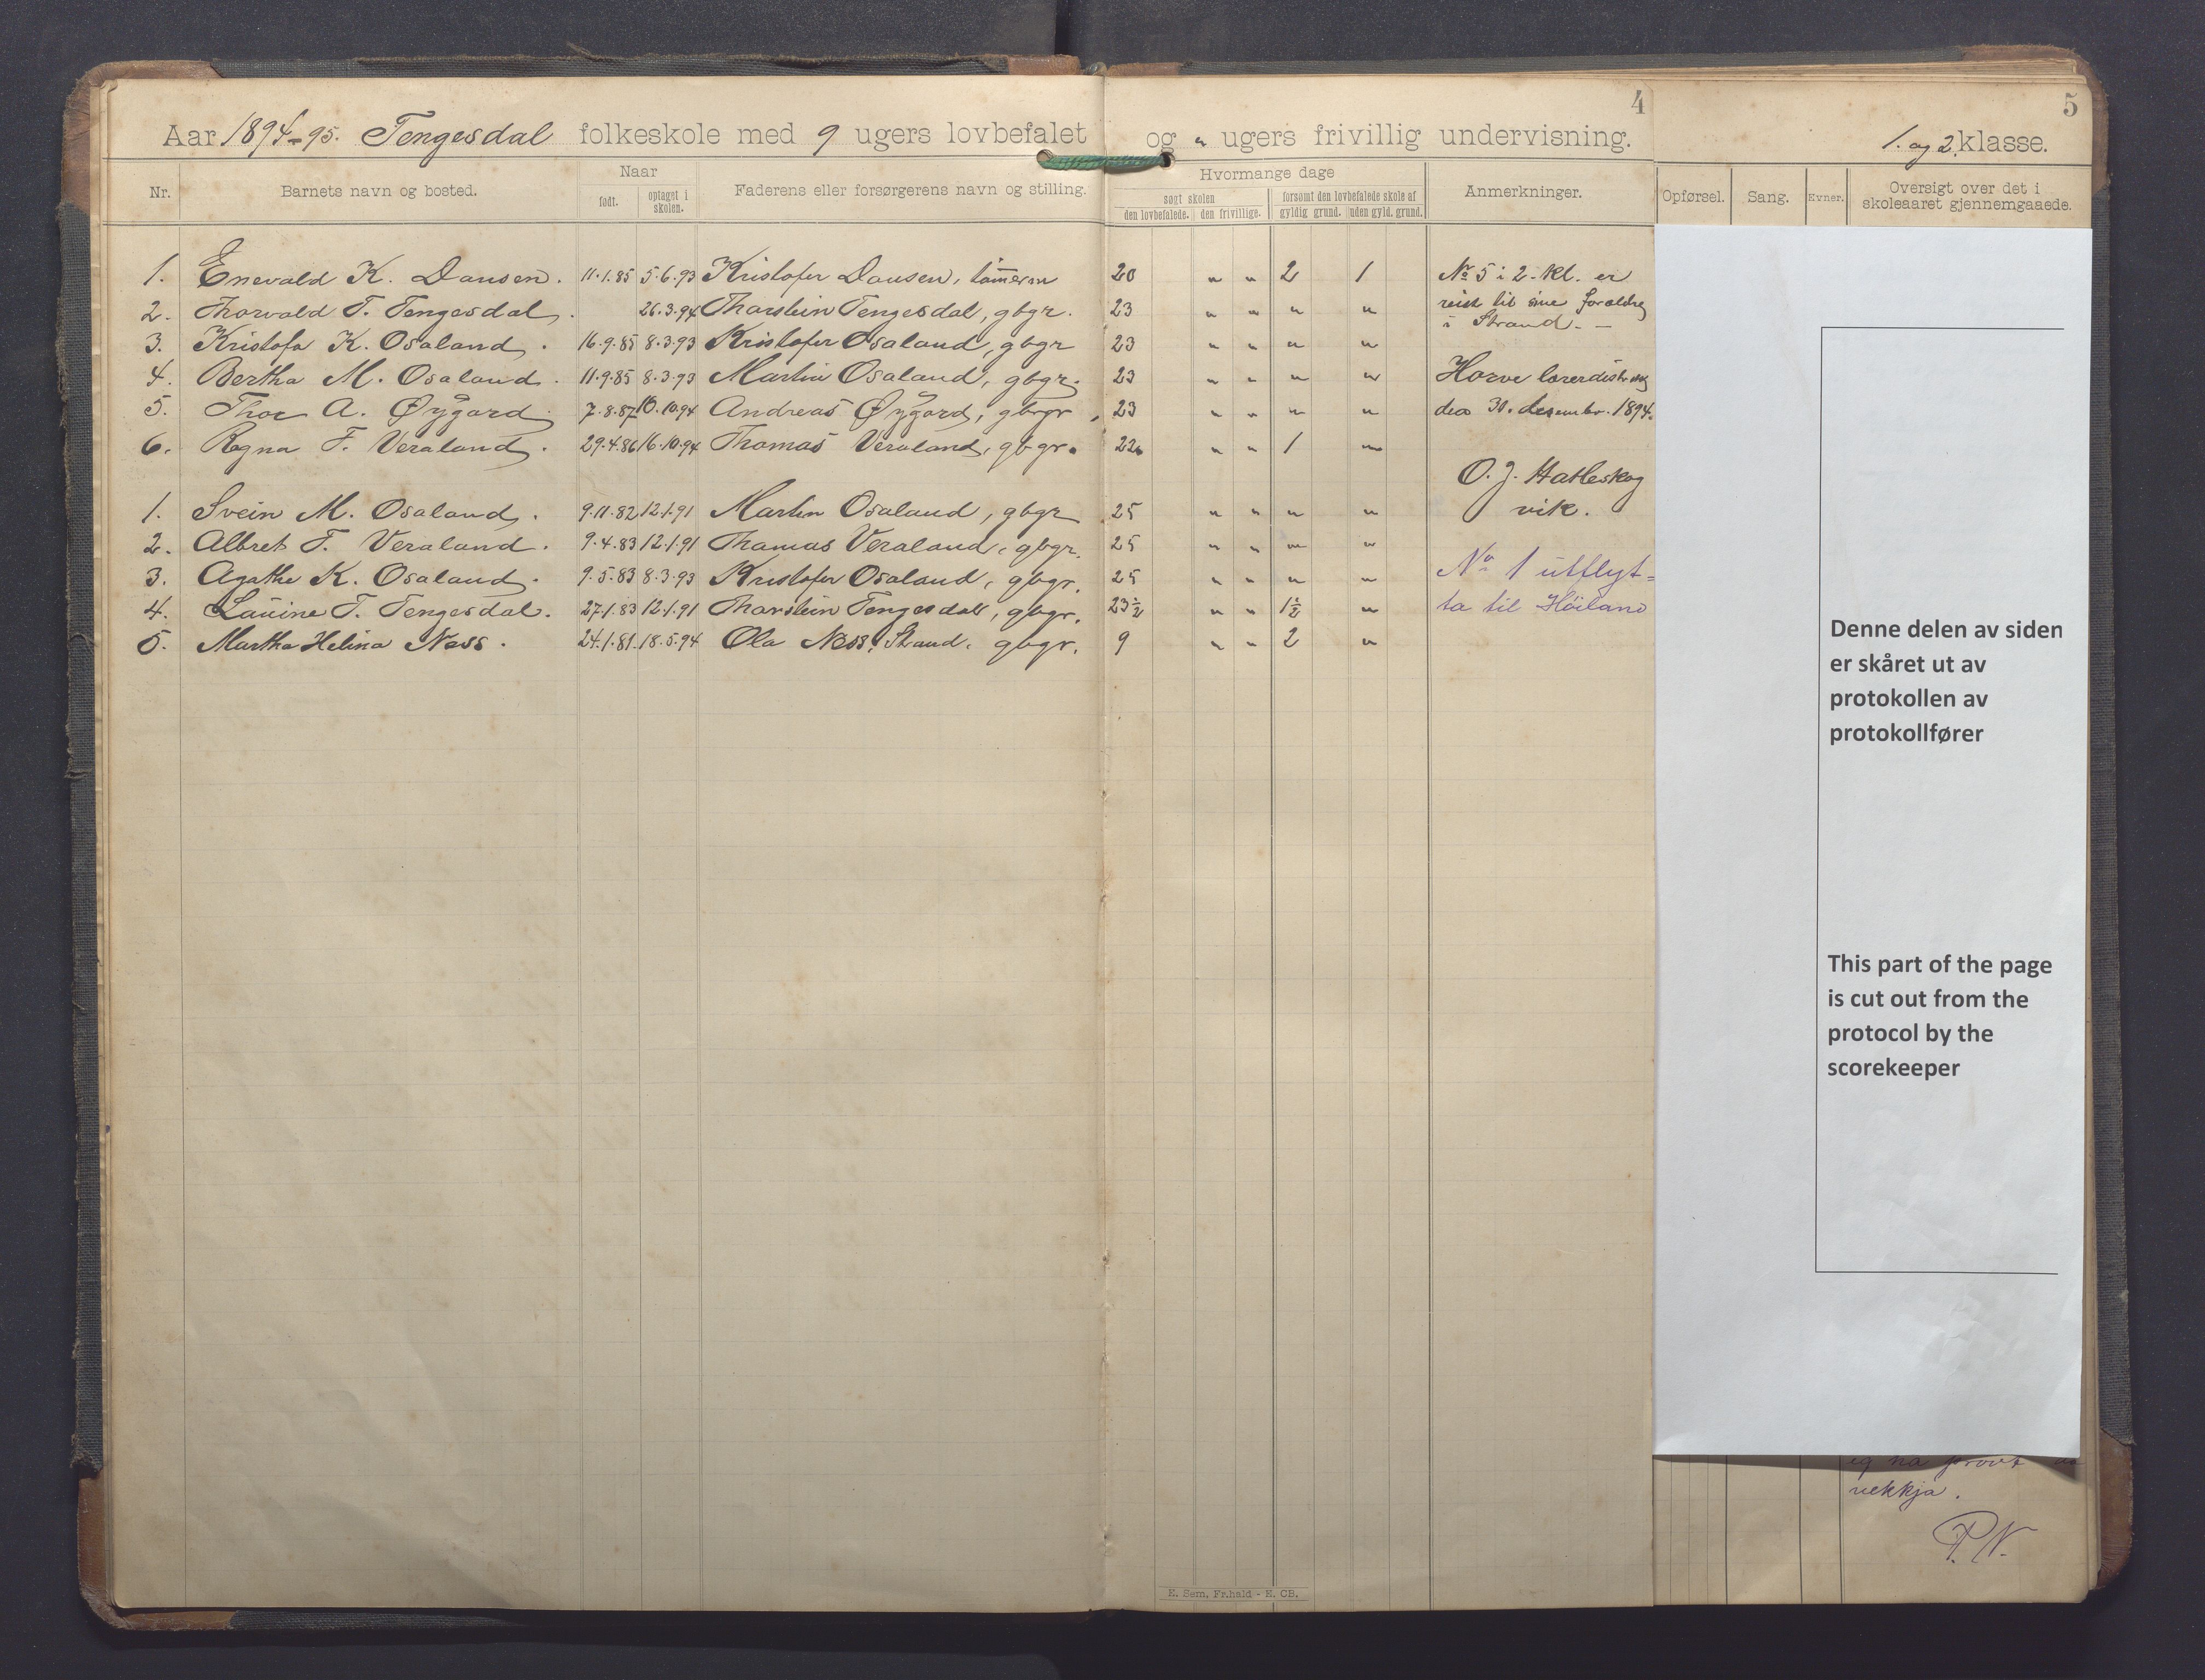 4
5
Aar 1894-95. Tengesdal folkeskole med 9 ugers lovbefalet og " ugers frivillig undervisning.
1. og 2. klasse.
Nr. Barnets navn og bosted. Naar født. optaget i skolen. Faderens eller forsørgerens navn og stilling. Hvormange dage søgt skolen den lovbefalede. den frivillige. forsømt den lovbefalede skole af gyldig grund. uden gyld. grund. Anmerkninger. Opførsel. Sang. Evner. Oversigt over det i skoleaaret gjennemgaaede.
1. Enevald K. Dansen. 11.1.85 5.6.93 Kristofer Dansen, 20 " " 2 1 No 5 i 2. kl. er
2. Thorvald T. Tengesdal. 26.3.94 Thorstein Tengesdal, gbgr. 23 " " " " reist til sine forældre
i Strand. -
3. Kristofa K. Osaland. 16.9.85 8.3.93 Kristofer Osaland, gbgr 23 " " " "
4. Bertha M. Osaland. 11.9.85 8.3.93 Martin Osaland, gbgr. 23 " " " " Horve lærerdistr.
5. Thor A. Øygard. 7.8.87 10.10.94 Andreas Øygard, gbgr. 23 " " " " den 30. desember. 1894.
6. Ragna T. Veraland. 29.4.86 16.10.94 Thomas Veraland, gbgr. 22 " " 1 "
O. J. Hatleskog
vik.
1. Svein M. Osaland. 9.11.82 12.1.91 Martin Osaland, gbgr 25 " " " "
2. Albret T. Veraland. 9.4.83 12.1.91 Thomas Veraland, gbgr. 25 " " " "
3. Agathe K. Osaland. 9.5.83 8.3.93 Kristofer Osaland, gbgr. 25 " " " " No 1 utflyt=
4. Lauine T. Tengesdal. 27.1.83 12.1.91 Thorstein Tengesdal, gbgr. 23½ " " 1½ " ta til Høiland
5. Martha Helina Ness. 24.1.81 18.5.94 Ola Ness, Strand. gbgr. 9 " " 2 "
Denne delen av siden
er skåret ut av
protokollen av
protokollfører
This part of the page
is cut out from the
protocol by the
scorekeeper
eg ha prøvt
vekkja.
P.N.
E. Sem, Fr.hald - E. CB.